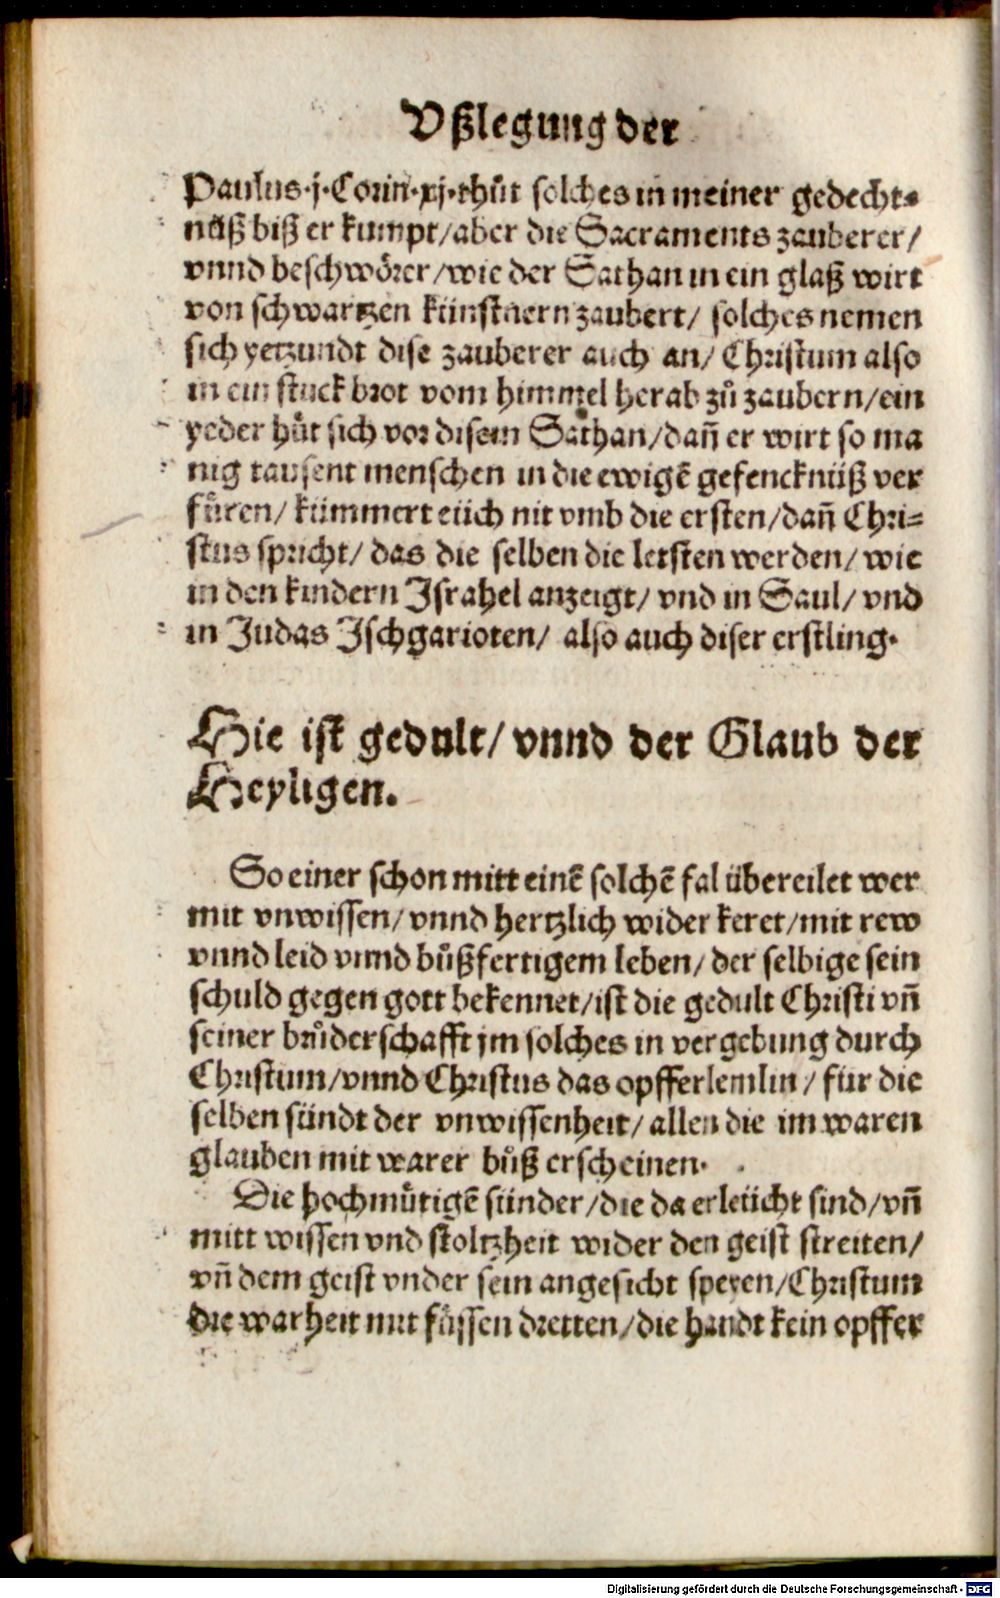 Vßlegung der
Paulus·j·Corin·xj·thůt solches in meiner gedecht⸗
nüß biß er kumpt/aber die Sacraments zauberer/
vnnd beschwörer/wie der Sathan in ein glaß wirt
von schwartzen künstnern zaubert/ solches nemen
sich yetzundt dise zauberer auch an/ Christum also
in ein stuck brot vom himmel herab zů zaubern/ein
yeder hüt sich vor disem Sathan/dañ er wirt so ma
nig tausent menschen in die ewigẽ gefencknüß ver
füren/ kümmert eüch nit vmb die ersten/dañ Chri⸗
stus spricht/ das die selben die letsten werden/ wie
in den kindern Israhel anzeigt/ vnd in Saul/ vnd
in Judas Ischgarioten/ also auch diser erstling.
Hie ist gedult/ vnnd der Glaub der
Heyligen.
So einer schon mitt einẽ solchẽ fal übereilet wer
mit vnwissen/vnnd hertzlich wider keret/mit rew
vnnd leid vnnd bůßfertigem leben/ der selbige sein
schuld gegen gott bekennet/ist die gedult Christi vñ
seiner brůderschafft jm solches in vergebung durch
Christum/vnnd Christus das opfferlemlin/ für die
selben sündt der vnwissenheit/ allen die im waren
glauben mit warer bůß erscheinen.
Die hochmütigẽ sünder/die da erleücht sind/vñ
mitt wissen vnd stoltzheit wider den geist streiten/
vñ dem geist vnder sein angesicht speyen/Christum
die warheit mit füssen dretten/die handt kein opffer
Digitalisierung gefördert durch die Deutsche Forschungsgemeinschaft - DFG